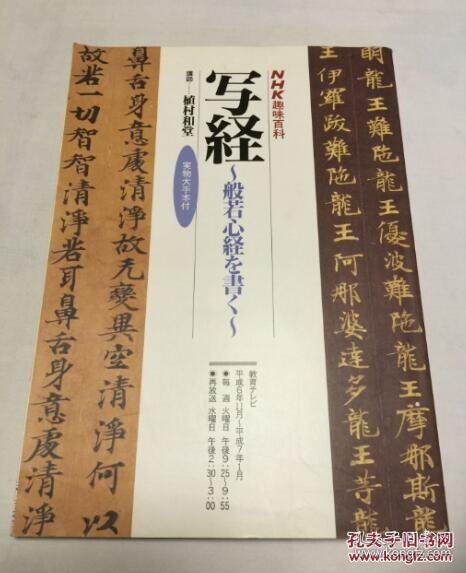 明龍王難陁龍王優波難陁龍王摩那斯龍
王伊羅跋難陁龍王阿那婆達多龍王等龍
NHK趣味百科
写経
〜般若心経を書く〜
講師——植村和堂
実物大手本付
教育テレビ
平成6年11月〜平成7年1月
●毎週 火曜日 午後9:25〜9:55
●再放送 水曜日 午後2:30〜3:00
鼻舌身意處清淨故无變異空清淨何以
故若一切智智清淨若耳鼻舌身意處清淨
孔夫子旧书网